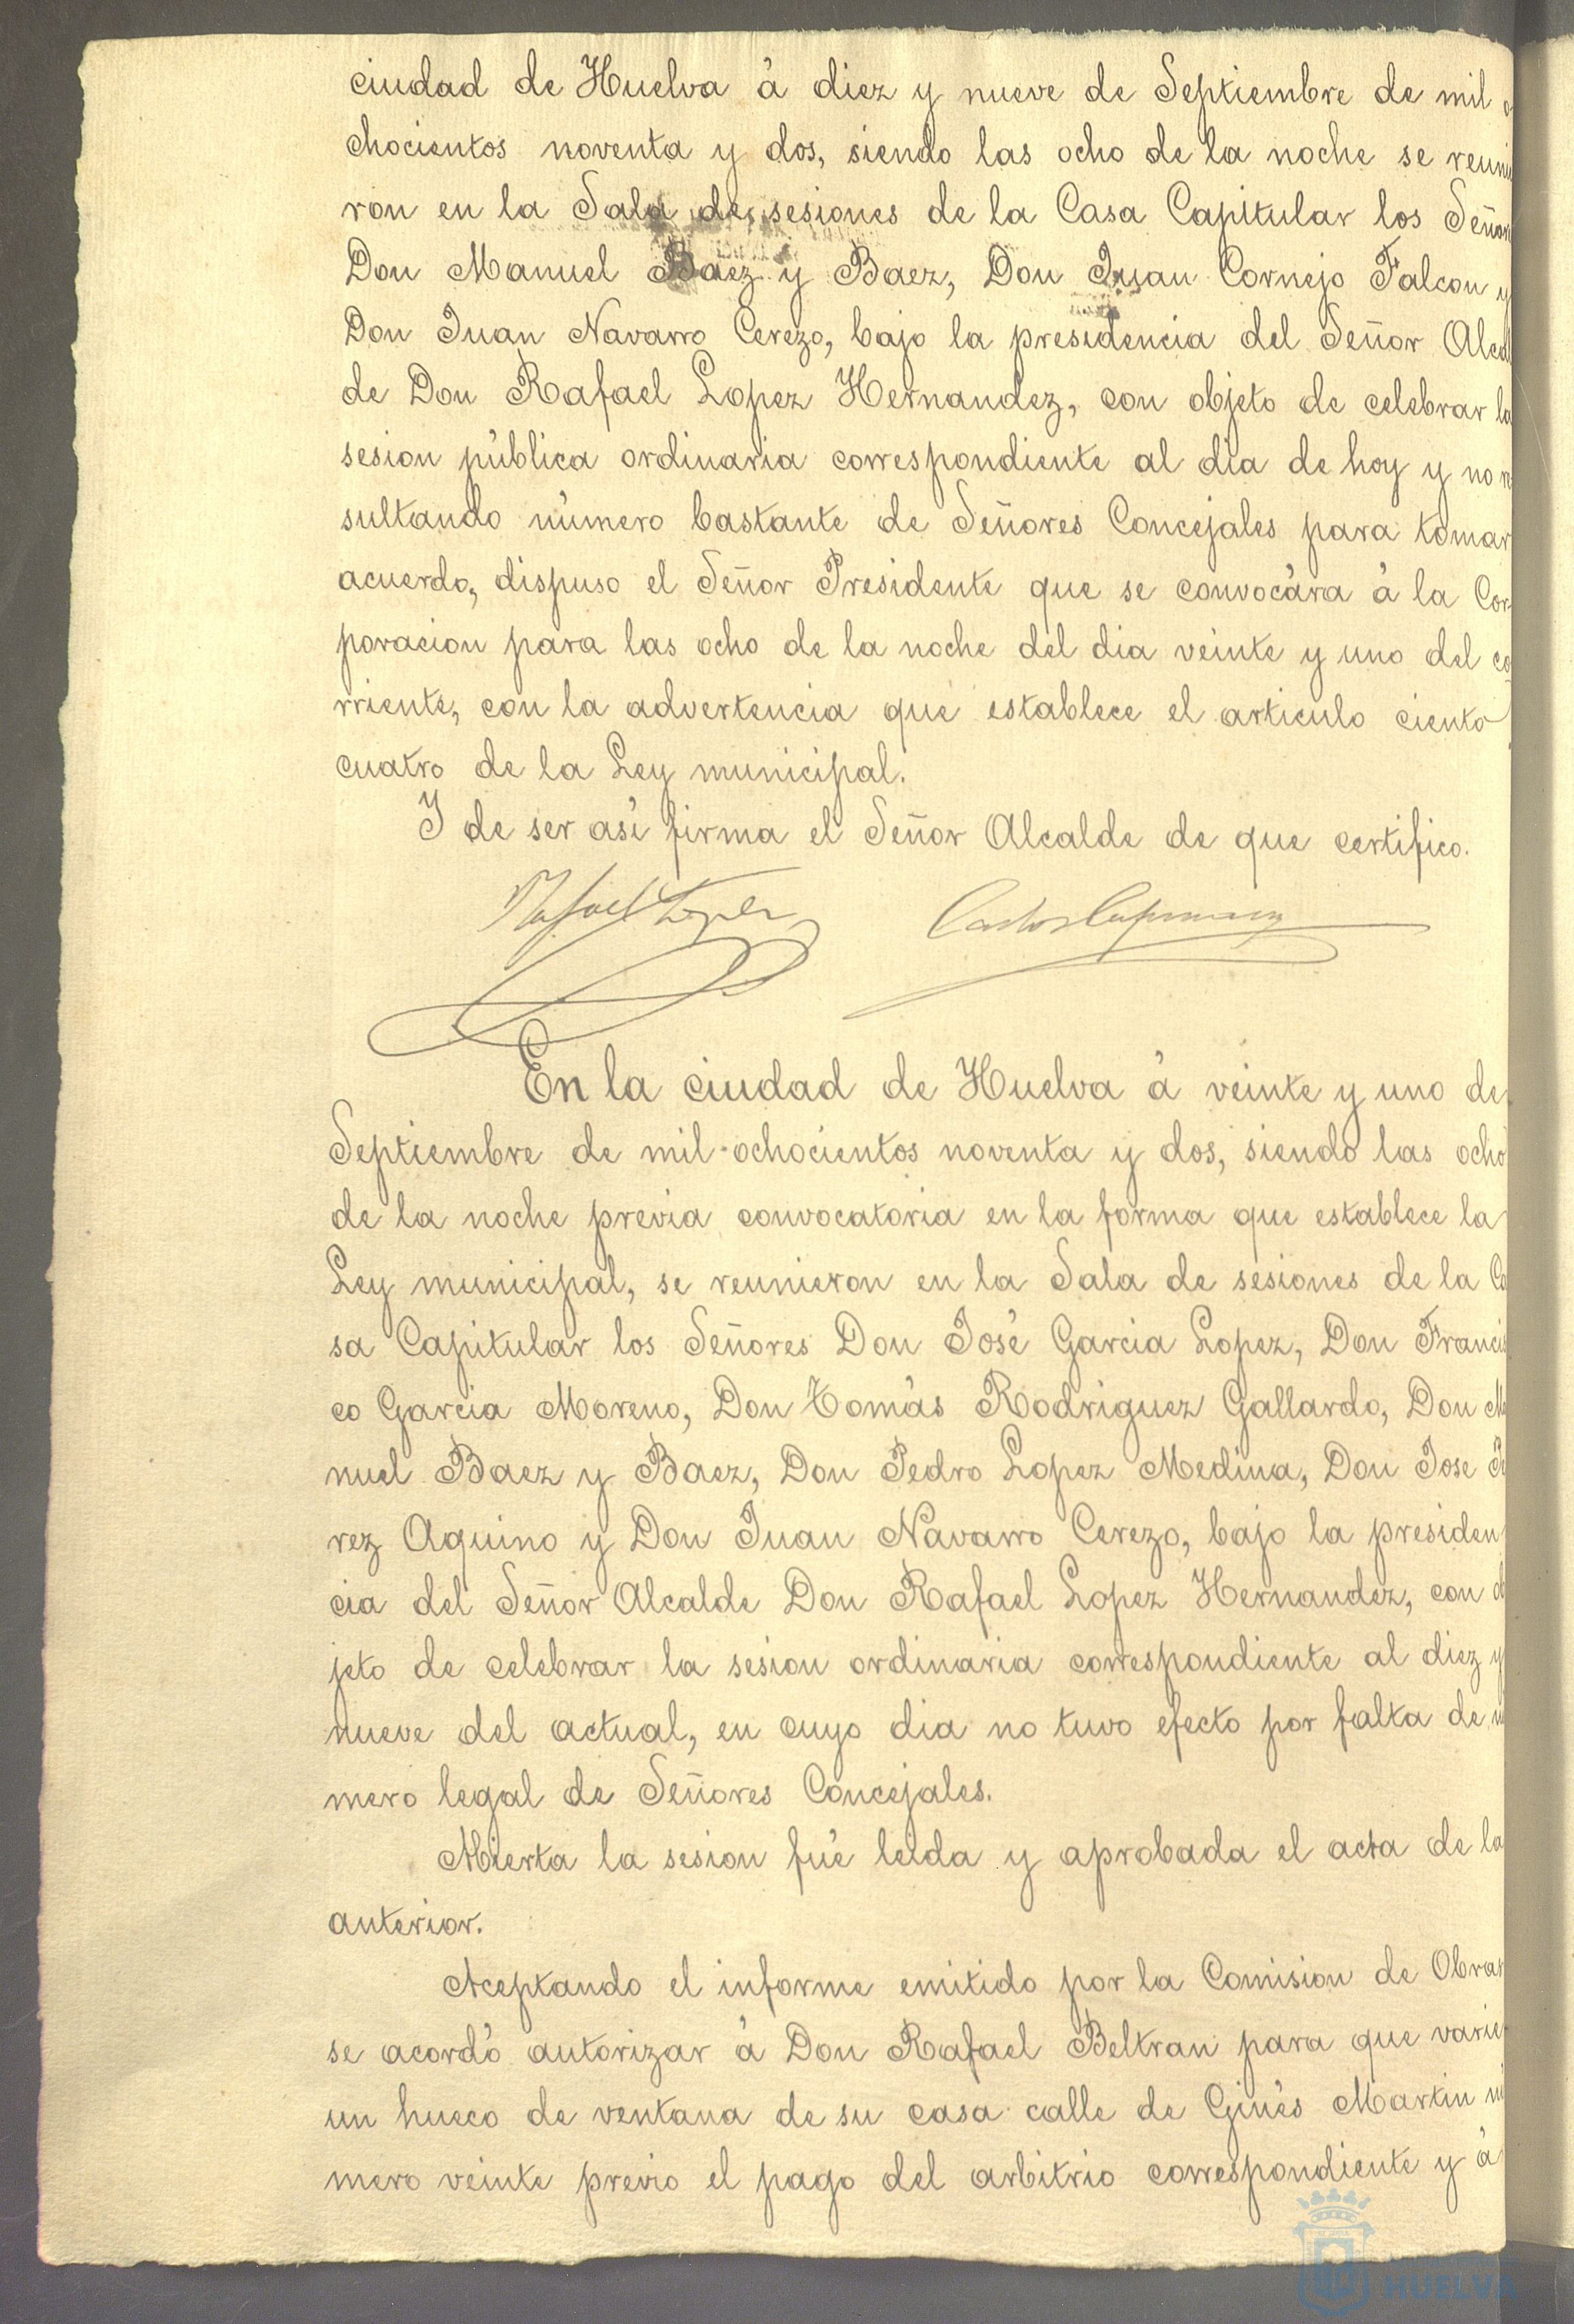 ciudad de Huelva á diez y nueve de Septiembre de mil o
chocientos noventa y dos, siendo las ocho de la noche se reunie
ron en la Sala de sesiones de la Casa Capitular los Señores
Don Manuel Baez y Baez, Don Juan Cornejo Falcon y
Don Juan Navarro Cerezo, bajo la presidencia del Señor Alcal
de Don Rafael Lopez Hernandez, con objeto de celebrar la
sesion pública ordinaria correspondiente al dia de hoy y no re
sultando número bastante de Señores Concejales para tomar
acuerdo, dispuso el Señor Presidente que se convocára á la Cor-
poracion para las ocho de la noche del dia veinte y uno del co
rriente, con la advertencia que establece el articulo ciento
cuatro de la Ley municipal.
Y de ser asi firma el Señor Alcalde de que certifico.
Rafael Lopez
En la ciudad de Huelva á veinte y uno de
Septiembre de mil ochocientos noventa y dos, siendo las ocho
de la noche previa convocatoria en la forma que establece la
Ley municipal, se reunieron en la Sala de sesiones de la Ca
sa Capitular los Señores Don José Garcia Lopez, Don Francis
co Garcia Moreno, Don Tomás Rodriguez Gallardo, Don Ma
nuel Baez y Baez, Don Pedro Lopez Medina, Don Jose
rez Aquino y Don Juan Navarro Cerezo, bajo la presiden
cia del Señor Alcalde Don Rafael Lopez Hernandez, con ob
jeto de celebrar la sesion ordinaria correspondiente al diez y
nueve del actual, en cuyo dia no tuvo efecto por falta de nú
mero legal de Señores Concejales.
Abierta la sesion fué leida y aprobada el acta de la
anterior.
Aceptando el informe emitido por la Comision de Obras
se acordó autorizar á Don Rafael Beltran para que varie
un hueco de ventana de su casa calle de Ginés Martin nú
mero veinte previo el pago del arbitrio correspondiente y á
HUELVA